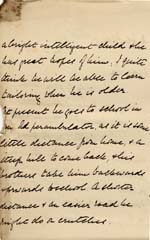 a bright intelligent child & she
has great hopes of him. I quite
think he will be able to learn
tailoring when he is older.
At present he goes to school in
his perambulator, as it is some
little distance from home, & a
steep hill to come back, & his
brothers take him backwards
& forwards to school. A shorter
distance & an easier road he
might do on crutches.